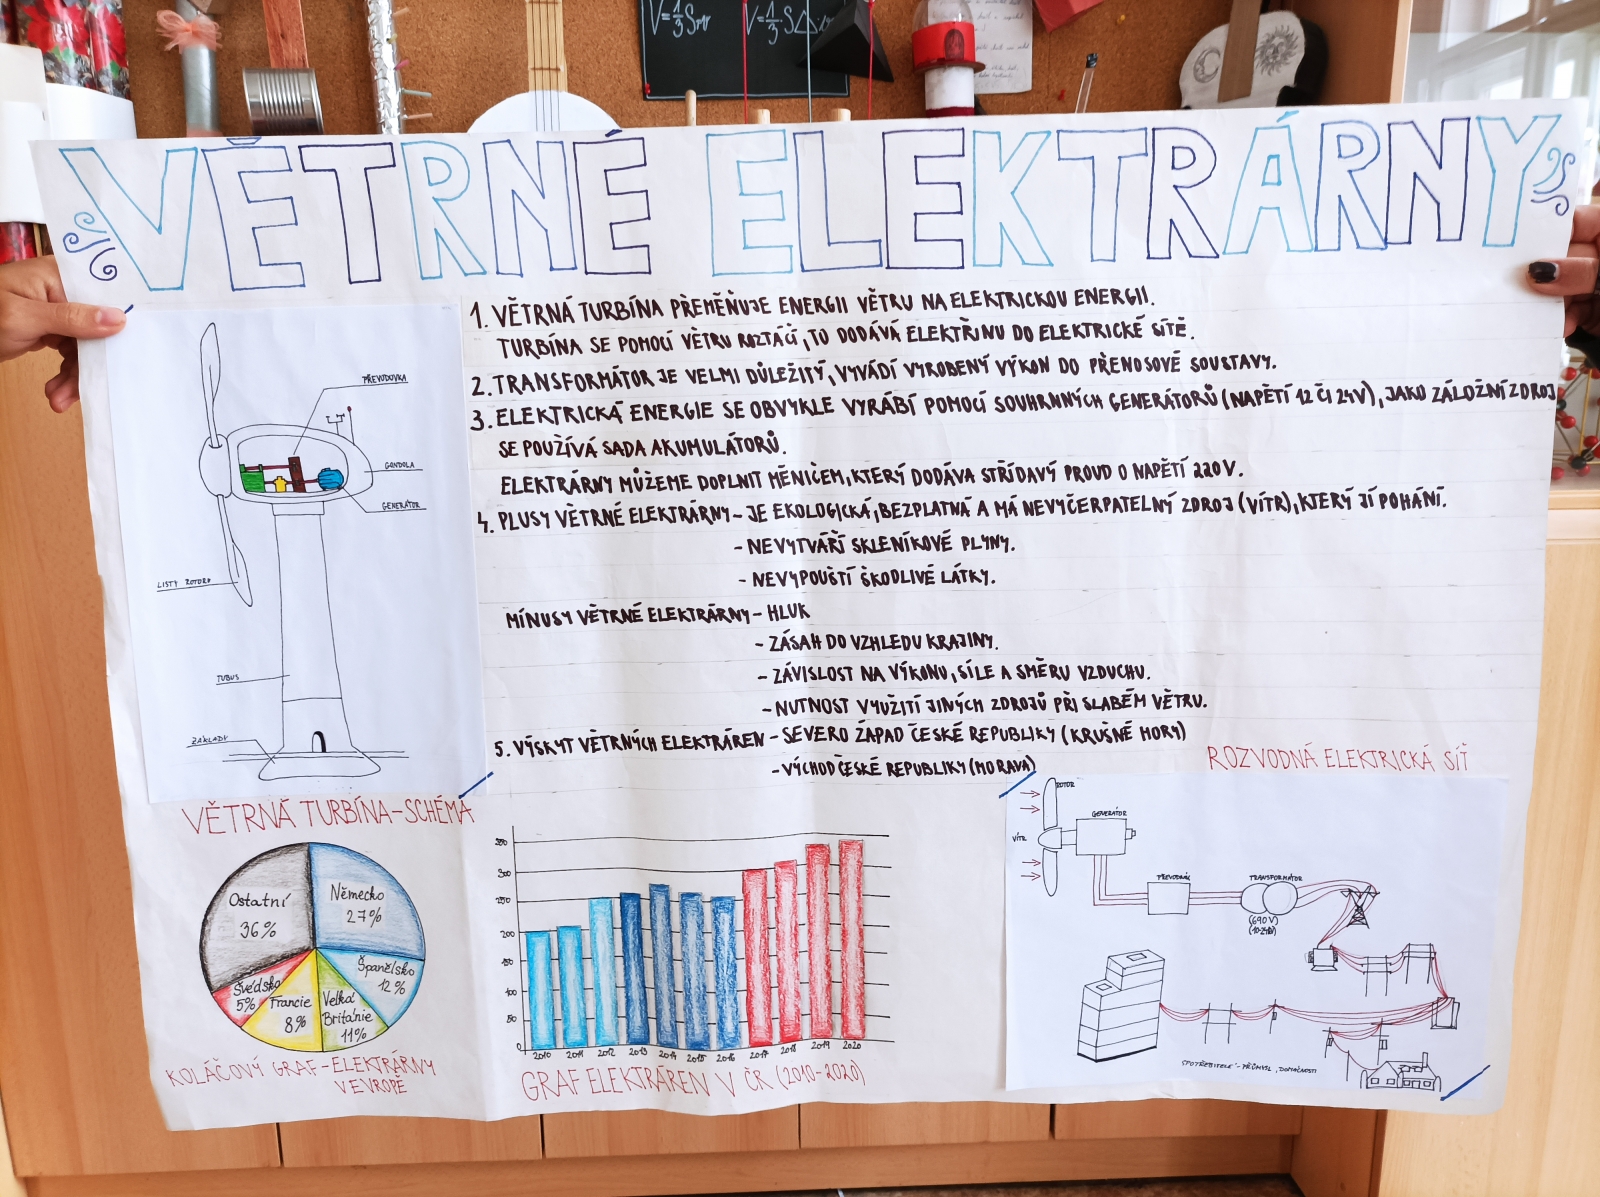 V=⅓Sₚ·v
VĚTRNÉ ELEKTRÁRNY
PŘEVODOVKA
GONDOLA
GENERÁTOR
LISTY ROTORU
TUBUS
ZÁKLADY
VĚTRNÁ TURBÍNA-SCHÉMA
1. VĚTRNÁ TURBÍNA PŘEMĚŇUJE ENERGII VĚTRU NA ELEKTRICKOU ENERGII.
TURBÍNA SE POMOCÍ VĚTRU ROZTÁČÍ, TO DODÁVÁ ELEKTŘINU DO ELEKTRICKÉ SÍTĚ.
2. TRANSFORMÁTOR JE VELMI DŮLEŽITÝ, VYVÁDÍ VYROBENÝ VÝKON DO PŘENOSOVÉ SOUSTAVY.
3. ELEKTRICKÁ ENERGIE SE OBVYKLE VYRÁBÍ POMOCÍ SOUHRNNÝCH GENERÁTORŮ (NAPĚTÍ 12 ČI 24V), JAKO ZÁLOŽNÍ ZDROJ
SE POUŽÍVÁ SADA AKUMULÁTORŮ.
ELEKTRÁRNY MŮŽEME DOPLNIT MĚNIČEM, KTERÝ DODÁVA STŘÍDAVÝ PROUD O NAPĚTÍ 220V.
4. PLUSY VĚTRNÉ ELEKTRÁRNY - JE EKOLOGICKÁ, BEZPLATNÁ A MÁ NEVYČERPATELNÝ ZDROJ (VÍTR), KTERÝ JÍ POHÁNÍ.
- NEVYTVÁŘÍ SKLENÍKOVÉ PLYNY.
- NEVYPOUŠTÍ ŠKODLIVÉ LÁTKY.
MÍNUSY VĚTRNÉ ELEKTRÁRNY - HLUK
- ZÁSAH DO VZHLEDU KRAJINY.
- ZÁVISLOST NA VÝKONU, SÍLE A SMĚRU VZDUCHU.
- NUTNOST VYUŽITÍ JINÝCH ZDROJŮ PŘI SLABÉM VĚTRU.
5. VÝSKYT VĚTRNÝCH ELEKTRÁREN - SEVERO ZÁPAD ČESKÉ REPUBLIKY (KRUŠNÉ HORY)
- VÝCHOD ČESKÉ REPUBLIKY (MORAVA)
Ostatní
36%
Německo
27%
Španělsko
12%
Velká
Británie
11%
Francie
8%
Švédsko
5%
KOLÁČOVÝ GRAF-ELEKTRÁRNY
V EVROPĚ
350
300
250
200
150
100
50
0
2010 2011 2012 2013 2014 2015 2016 2017 2018 2019 2020
GRAF ELEKTRÁREN V ČR (2010-2020)
ROZVODNÁ ELEKTRICKÁ SÍŤ
ROTOR
VÍTR
GENERÁTOR
PŘEVODNÍK
TRANSFORMÁTOR
(690V)
SPOTŘEBITELÉ - PRŮMYSL, DOMÁCNOSTI